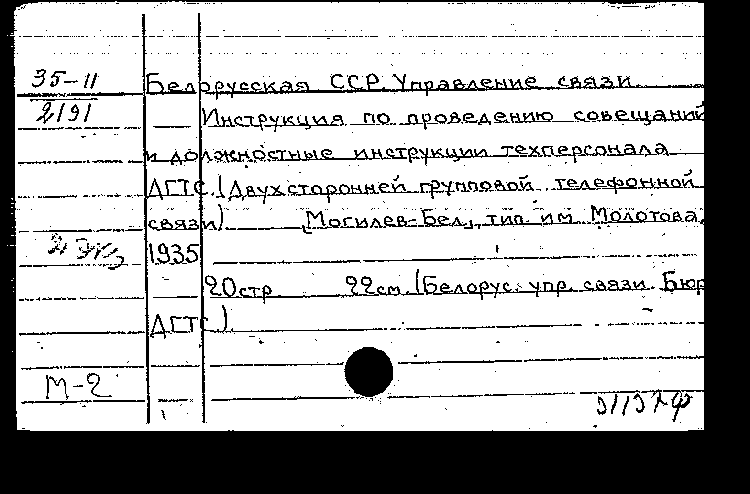 35-11
Белорусская ССР. Управление связи
2191
Инструкция по проведению совещаний
и должностные инструкции техперсонала
ДГТС. (Двухсторонней групповой телефонной
связи) [Могилев-Бел], тип. им. Молотова,
2 экз
1935
20стр. 22см. (Белорус. упр. связи. Бюр
ДГТС).
М-2